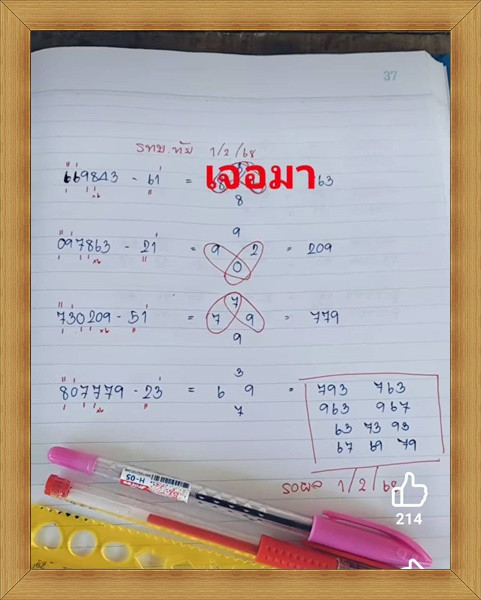 37
รทบ.ทับ 1/2/68
669843 - 61 = 63
เจอมา
8
9
097863 - 21 = 9 2 = 209
0
7
730209 - 51 = 7 9 = 779
9
3
807779 - 23 = 6 9 =
7
793 763
963 967
63 73 93
67 69 79
รอผล 1/2/68
H-05
214